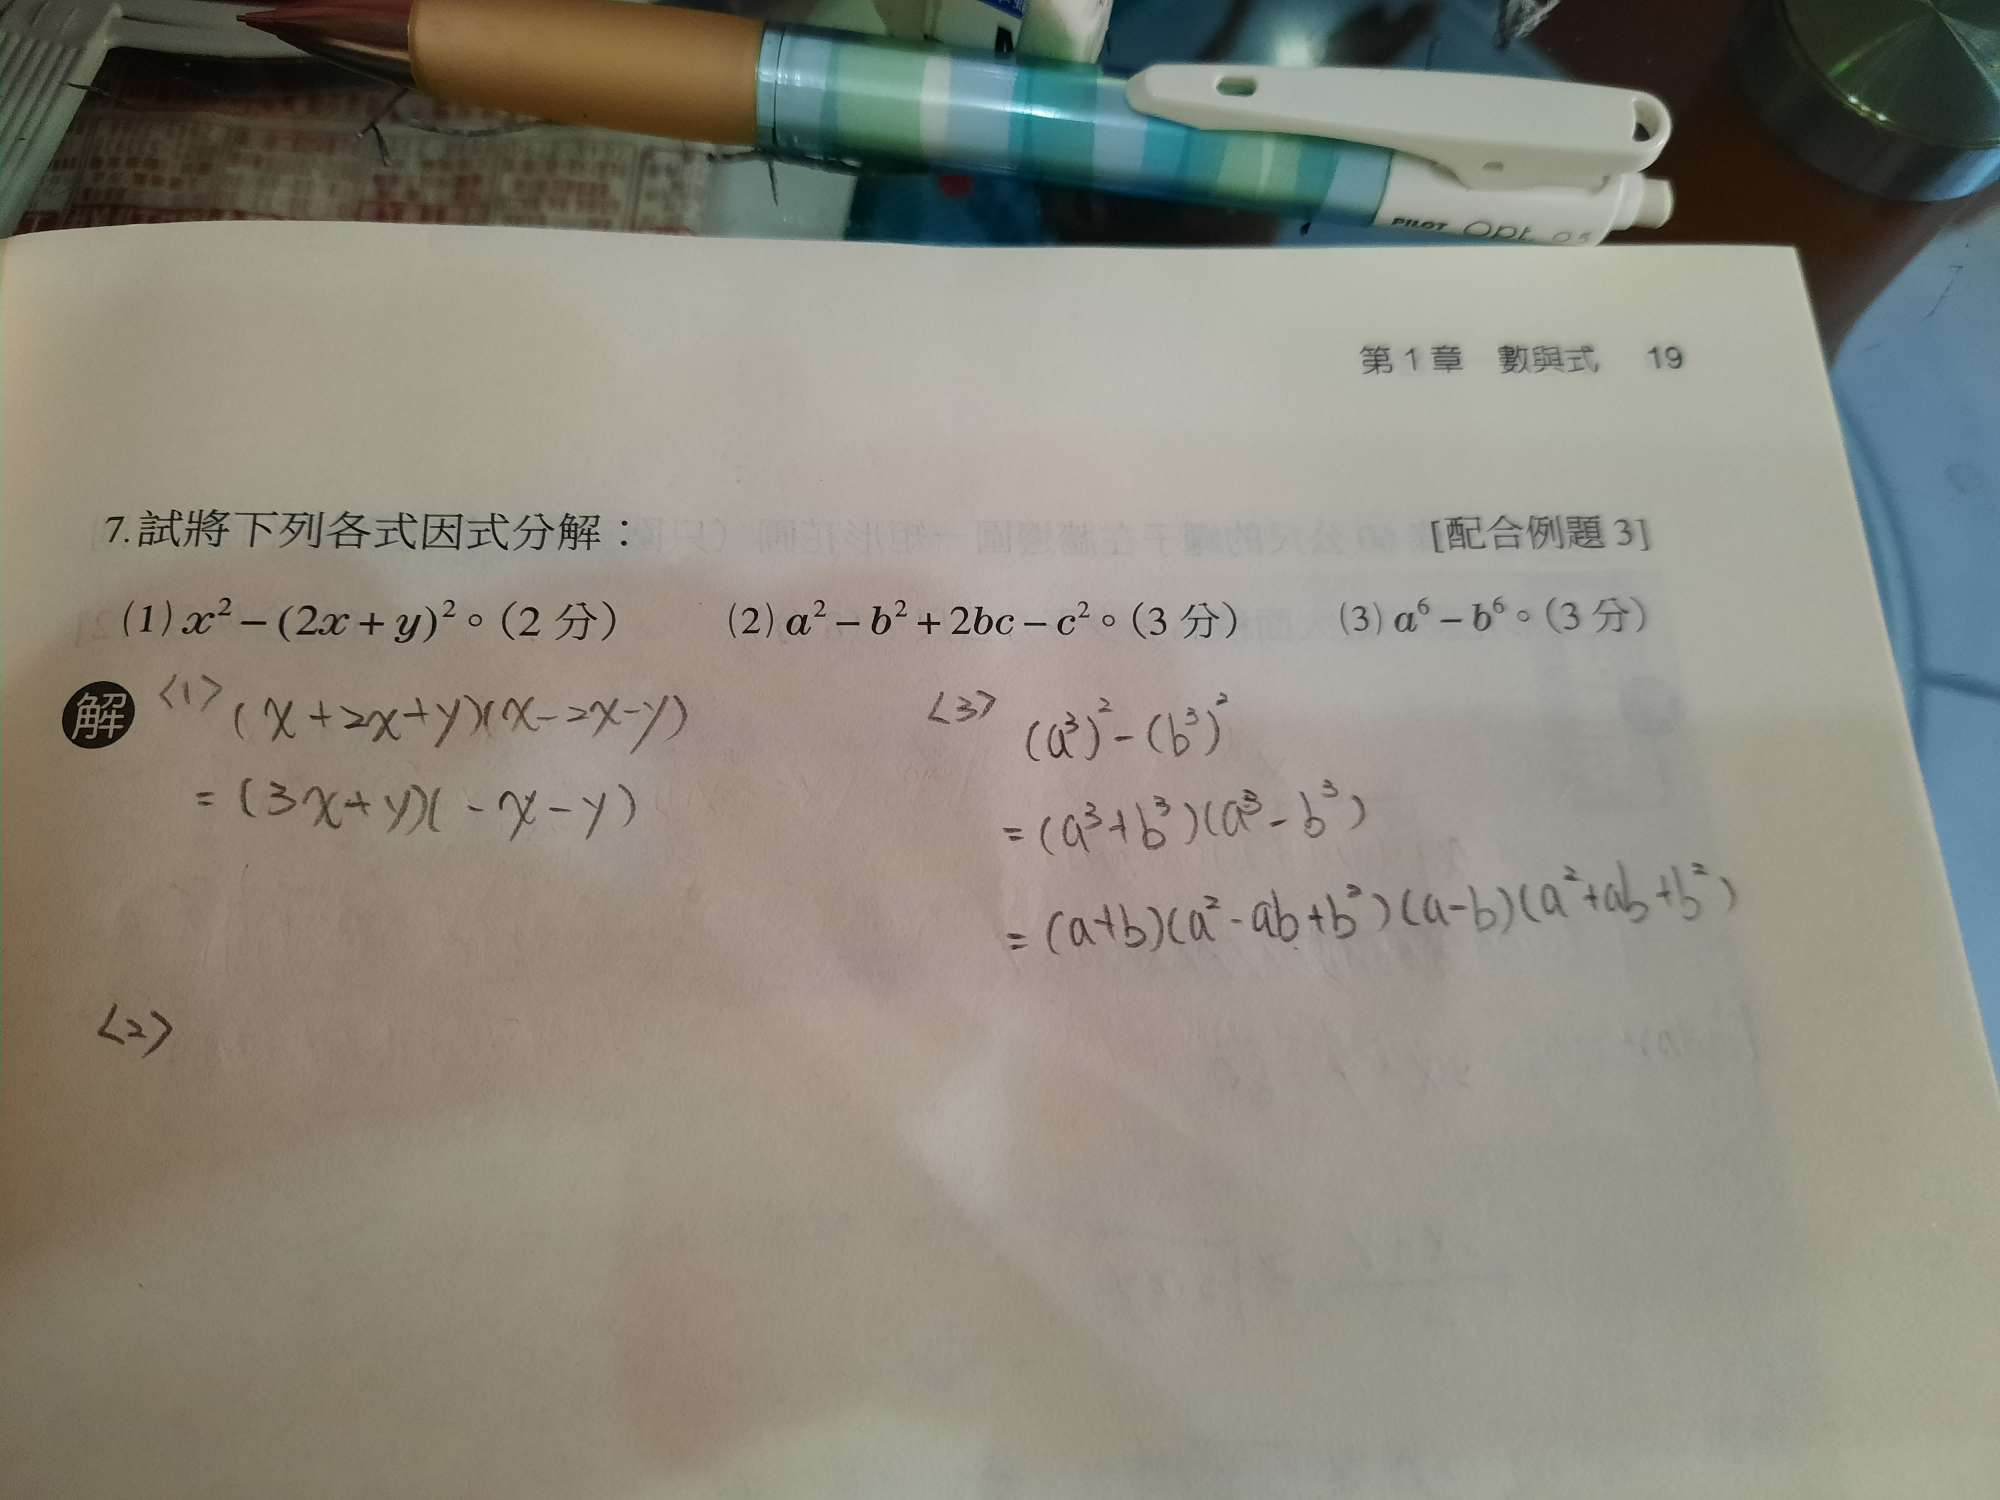 PILOT Opt. 0.5
第 1 章 數與式 19
7.試將下列各式因式分解： [配合例題 3]
(1) x² – (2x + y)²。(2 分) (2) a² – b² + 2bc – c²。(3 分) (3) a⁶ – b⁶。(3 分)
解 <1> (x+2x+y)(x-2x-y)
= (3x+y)(-x-y)
<3> (a³)² - (b³)²
= (a³+b³)(a³-b³)
= (a+b)(a²-ab+b²)(a-b)(a²+ab+b²)
<2>